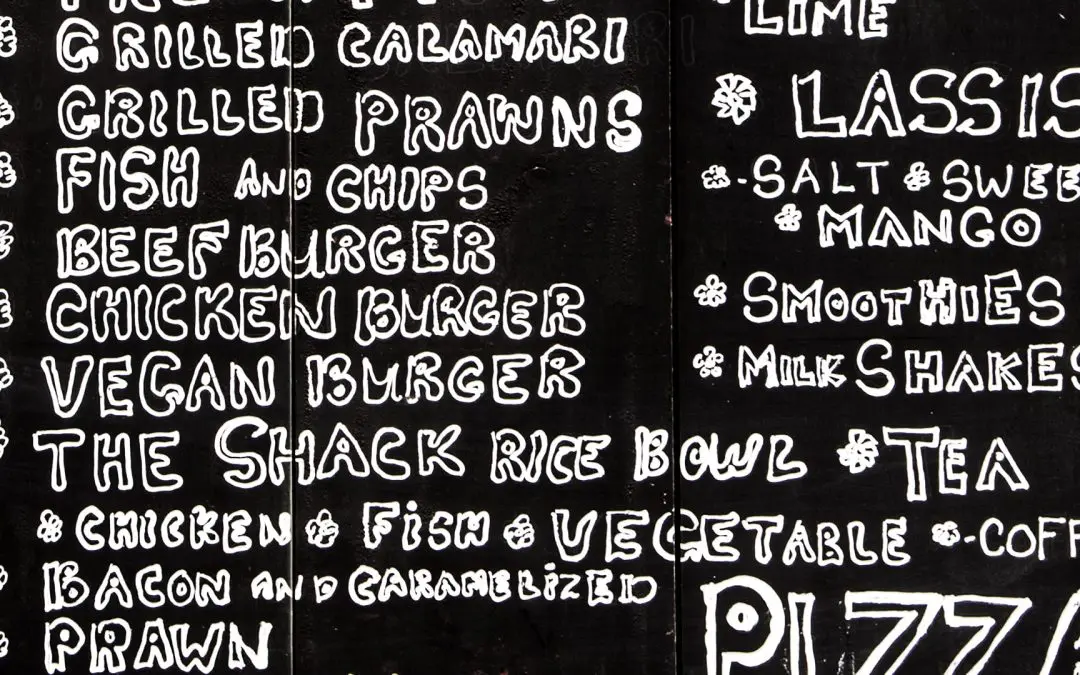 GRILLED CALAMARI
GRILLED PRAWNS
FISH AND CHIPS
BEEF BURGER
CHICKEN BURGER
VEGAN BURGER
THE SHACK RICE BOWL
CHICKEN FISH VEGETABLE
BACON AND CARAMELIZED
PRAWN
LIME
LASSIS
-SALT SWEE
MANGO
SMOOTHIES
MILKSHAKES
TEA
-COFF
PIZZA